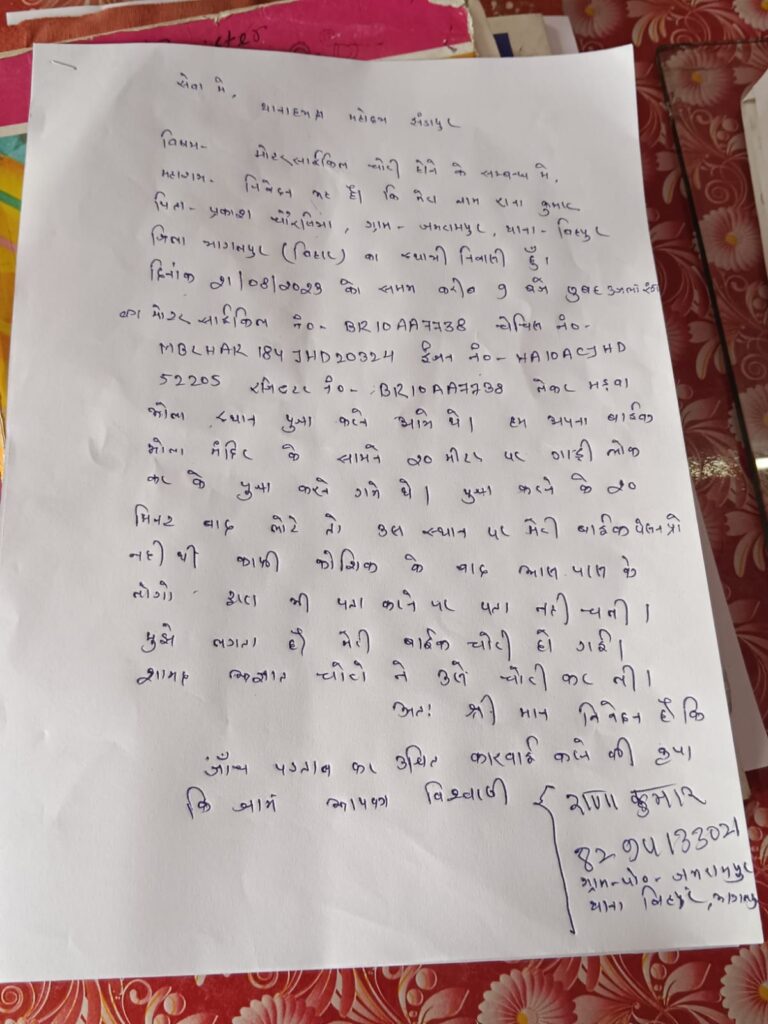 सेवा मे,
थानाध्यक्ष महोदय झंडापुर
विषय- मोटरसाईकिल चोरी होने के सम्बन्ध मे,
महाशय- निवेदन कर है। कि मेरा नाम राना कुमार
पिता- प्रकाश चौरसिया, ग्राम- जयरामपुर, थाना- बिहपुर
जिला भागलपुर (बिहार) का स्थायी निवासी हुँ।
दिनांक 21/08/2023 को समय करीब 9 बजे सुबह
का मोटर साईकिल नं०- BR10AA7738 चेचिस नं०-
MBLHAR184JHD20324 ईंजन नं०- HA10ACJHD
52205 रजिस्टर नं०- BR10AA7738 लेकर मड़वा
भोला स्थान पुजा करने आये थे। हम अपना बाईक
भोला मंदिर के सामने 20 मीटर पर गाड़ी लोक
कर के पुजा करने गये थे। पुजा करने के 20
मिनट बाद लोटे तो उस स्थान पर मेरी बाईक
नही थी काफी कोशिक के बाद आस पास के
लोगो द्वारा भी पता करने पर पता नही चली।
मुझे लगता है मेरी बाईक चोरी हो गई।
शायद अज्ञात चोरो ने उसे चोरी कर ली।
अतः श्री मान निवेदन है कि
जाँच पड़ताल कर उचित कारवाई करने की कृपा
कि जाय आपका विश्वासी
राणा कुमार
8294133021
ग्राम-पो०- जयरामपुर
थाना बिहपुर, भागलपुर